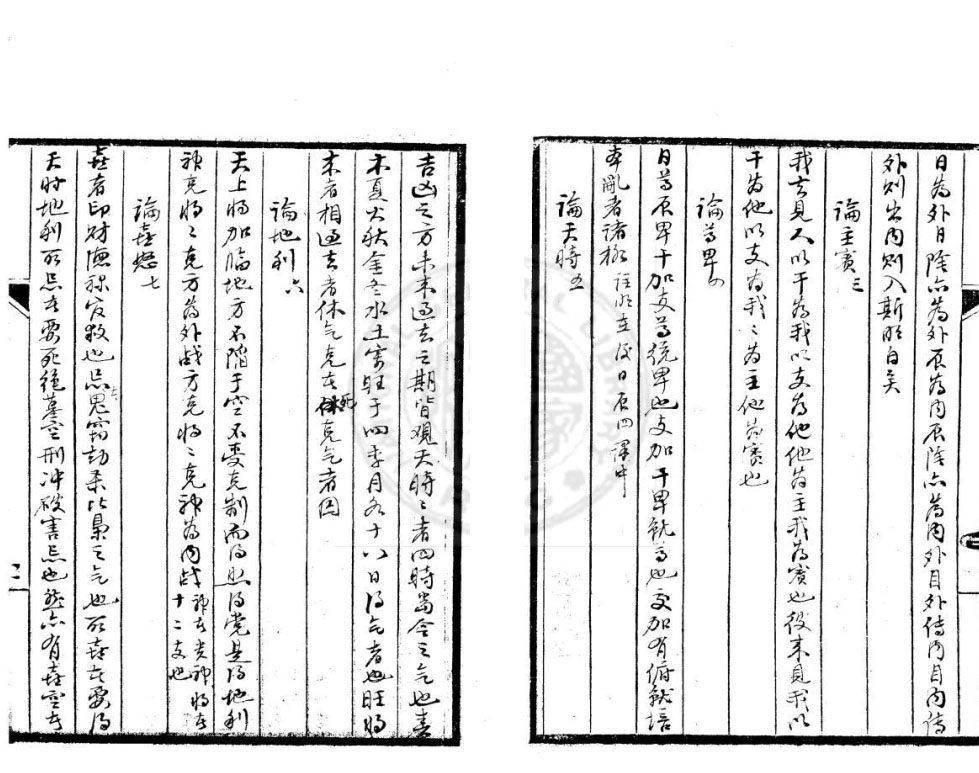 日為外日陰亦為外辰為內辰陰亦為內外目外傳內目內傳
外則出內則入斯明白矣
論主賓三
我去見人以干為我以支為他他為主我為賓也彼來見我以
干為他以支為我〻為主他為賓也
論尊卑四
日尊辰卑干加支尊統卑也支加干卑就尊也交加有俯就
亂者諸極註明在後日辰四譯中
論天時五
吉凶之方未來過去之期皆觀天時〻者四時當令之氣也春
木夏火秋金冬水土寄旺于四季月各十八日得氣者也旺將
來者相過去者休氣克者死克氣者囚
論地利六
天上將加臨地方不陷于空不受克制而得生得黨是得地利
神克將〻克方為外战方克將〻克神為內战神者貴神將者十二支也
論喜怒七
喜者印財德祿官救也忌鬼窃劫暴比梟之气也所喜者要得
天時地利所忌者要死絕墓空刑冲破害忌也然亦有喜空者